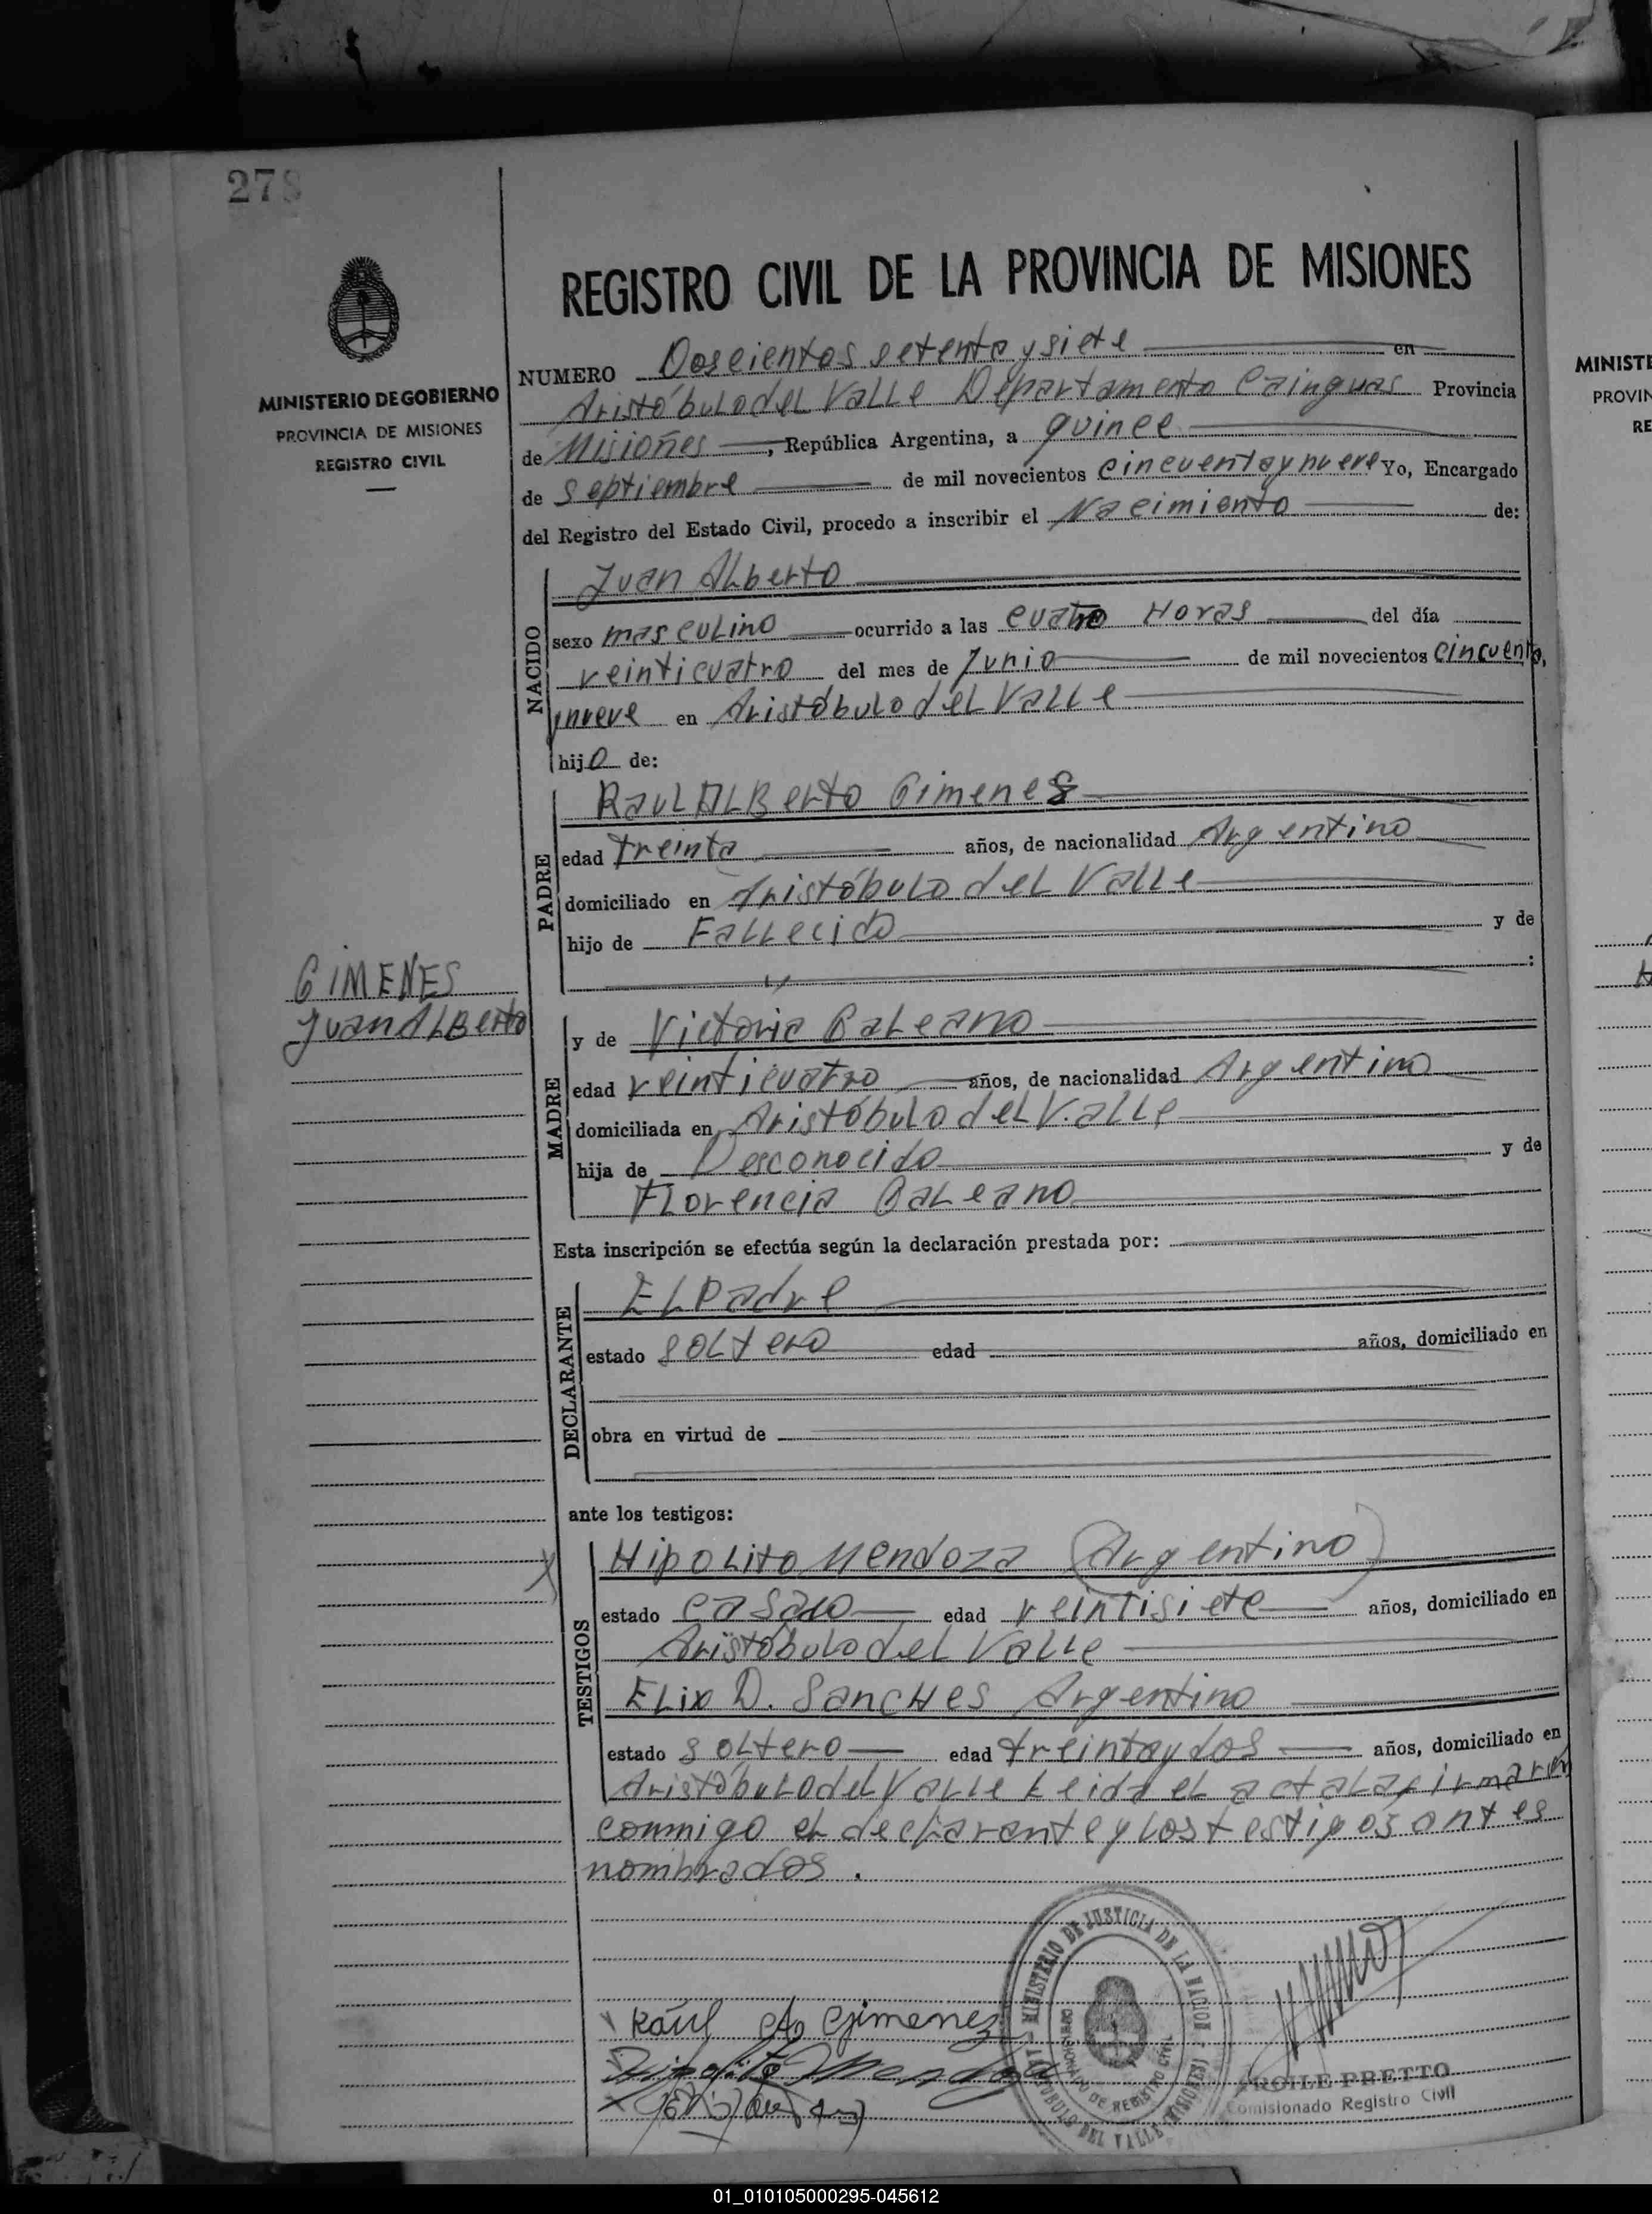 278
MINISTERIO DE GOBIERNO
PROVINCIA DE MISIONES
REGISTRO CIVIL
REGISTRO CIVIL DE LA PROVINCIA DE MISIONES
NUMERO Doscientos setenta y siete en
Aristóbulo del Valle Departamento Cainguas Provincia
de Misiones, República Argentina, a quince
de septiembre de mil novecientos cincuenta y nueve Yo, Encargado
del Registro del Estado Civil, procedo a inscribir el Nacimiento de:
NACIDO
Juan Alberto
sexo masculino ocurrido a las cuatro Horas del día
veinticuatro del mes de Junio de mil novecientos cincuenta,
ynueve en Aristóbulo del Valle
hijo de:
PADRE
Raul Alberto Gimenes
edad treinta años, de nacionalidad Argentino
domiciliado en Aristóbulo del Valle
hijo de Fallecido y de
:
GIMENES
Juan Alberto
MADRE
y de Victoria Baleano
edad veinticuatro años, de nacionalidad Argentina
domiciliada en Aristóbulo del Valle
hija de Desconocido y de
Florencia Baleano
Esta inscripción se efectúa según la declaración prestada por:
DECLARANTE
El Padre
estado soltero edad años, domiciliado en
obra en virtud de
ante los testigos:
TESTIGOS
X Hipolito Mendoza (Argentino)
estado casado edad veintisiete años, domiciliado en
Aristóbulo del Valle
Elix D. Sanches Argentino
estado soltero edad treinta y dos años, domiciliado en
Aristóbulo del Valle Leida el acta la firmaron
conmigo el declarante y los testigos antes
nombrados.
Raúl A. Gimenez
Hipolito Mendoza
MINISTERIO DE JUSTICIA DE LA NACION
COMISIONADO DE REGISTRO CIVIL
ARISTOBULO DEL VALLE (MISIONES)
PRETTO
Comisionado Registro Civil
MINISTE
PROVIN
RE
01_010105000295-045612